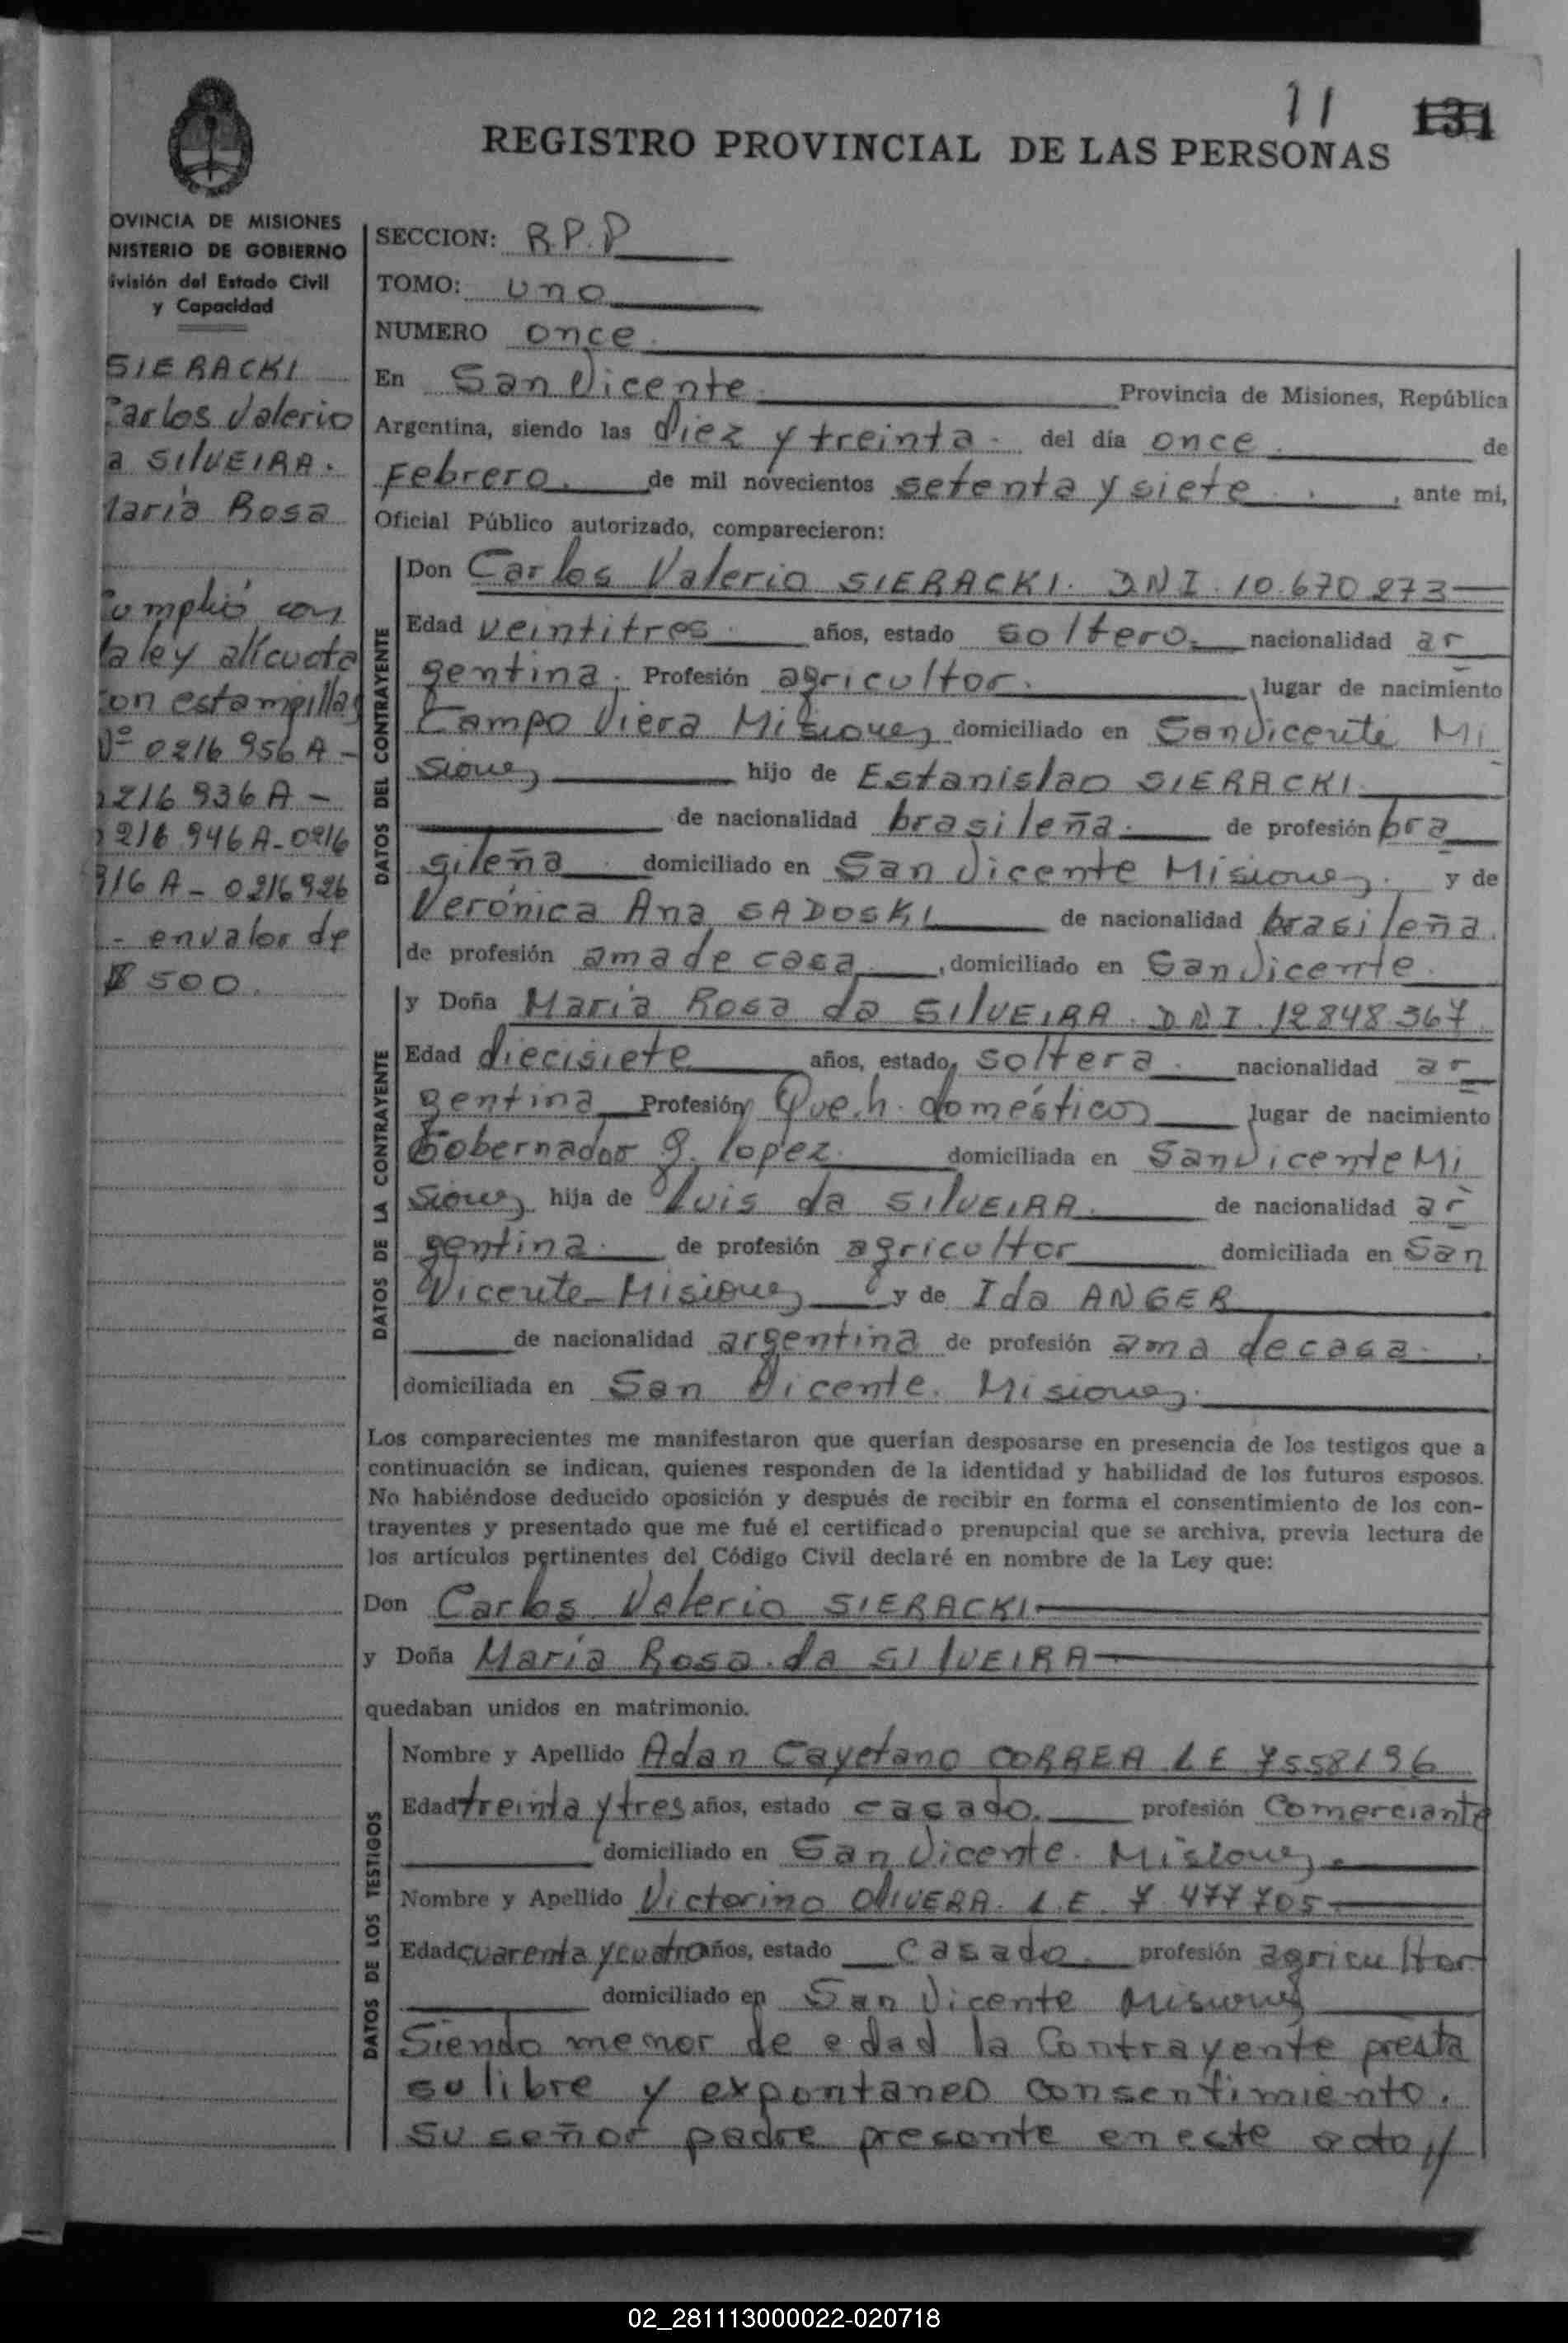 11 131
REGISTRO PROVINCIAL DE LAS PERSONAS
OVINCIA DE MISIONES
NISTERIO DE GOBIERNO
ivisión del Estado Civil
y Capacidad
SIERACKI
Carlos Valerio
a SILVEIRA.
María Rosa
Cumplió con
la ley alícuota
con estampillas
Nº 0216 956 A -
0216 936 A -
0216 946 A - 0216
916 A - 0216926
- en valor de
$ 500.
SECCION: R.P.P
TOMO: uno
NUMERO once
En San Vicente. Provincia de Misiones, República
Argentina, siendo las diez y treinta. del día once. de
Febrero. de mil novecientos setenta y siete. , ante mi,
Oficial Público autorizado, comparecieron:
DATOS DEL CONTRAYENTE
Don Carlos Valerio SIERACKI. DNI. 10.670.273
Edad veintitres. años, estado soltero. nacionalidad ar
gentina. Profesión agricultor. , lugar de nacimiento
Campo Viera Misiones domiciliado en San Vicente Mi
siones hijo de Estanislao SIERACKI.
de nacionalidad brasileña. de profesión bra
sileña. domiciliado en San Vicente Misiones. y de
Verónica Ana SADOSKI de nacionalidad brasileña.
de profesión ama de casa , domiciliado en San Vicente.
DATOS DE LA CONTRAYENTE
y Doña María Rosa da SILVEIRA. DNI. 12848367.
Edad diecisiete años, estado, soltera. nacionalidad ar
gentina Profesión Que.h. domésticos lugar de nacimiento
Gobernador J. lopez. domiciliada en San Vicente Mi
siones hija de Luis da SILVEIRA. de nacionalidad ar
gentina. de profesión agricultor domiciliada en San
Vicente - Misiones y de Ida ANGER
de nacionalidad argentina de profesión ama de casa. ,
domiciliada en San Vicente. Misiones.
Los comparecientes me manifestaron que querían desposarse en presencia de los testigos que a
continuación se indican, quienes responden de la identidad y habilidad de los futuros esposos.
No habiéndose deducido oposición y después de recibir en forma el consentimiento de los con-
trayentes y presentado que me fué el certificado prenupcial que se archiva, previa lectura de
los artículos pertinentes del Código Civil declaré en nombre de la Ley que:
Don Carlos Valerio SIERACKI
y Doña María Rosa. da SILVEIRA
quedaban unidos en matrimonio.
DATOS DE LOS TESTIGOS
Nombre y Apellido Adan Cayetano CORREA LE 7558196
Edad treinta y tres años, estado casado. profesión Comerciante
domiciliado en San Vicente. Misiones.
Nombre y Apellido Victorino OLIVERA. L.E. 7.477705
Edad cuarenta y cuatro años, estado casado. profesión agricultor
domiciliado en San Vicente Misiones
Siendo menor de edad la Contrayente presta
su libre y expontaneo consentimiento.
su señor padre presente en este acto//
02_281113000022-020718